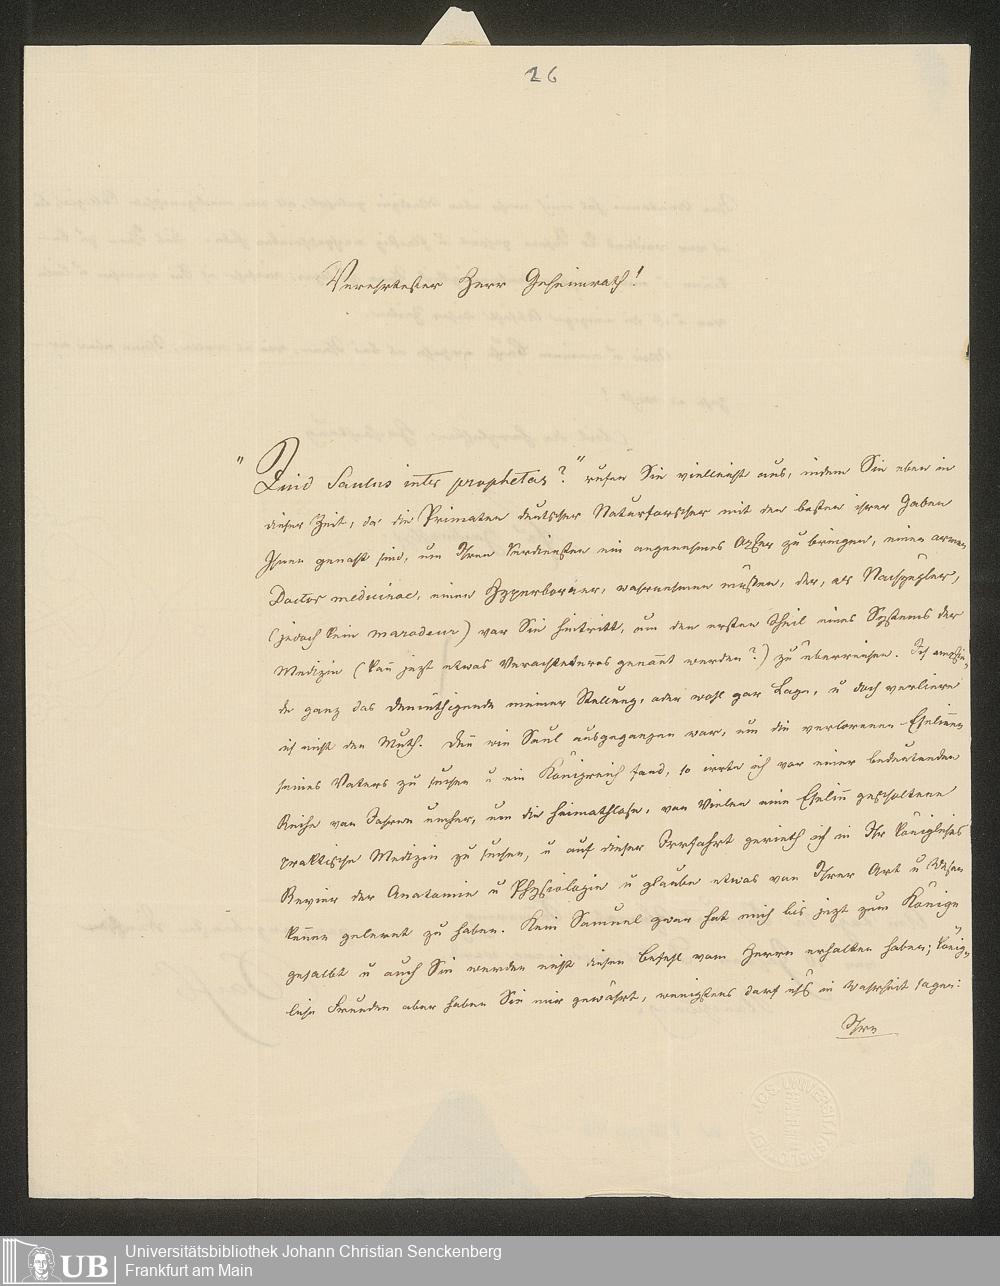 26
Verehrtester Herr Geheimrath!
"Quid Saulus inter prophetas?" rufen Sie vielleicht aus, indem Sie eben in
dieser Zeit, da die Primaten deutscher Naturforscher mit den besten ihrer Gaben
Ihnen genaht sind, um Ihren Verdiensten ein angenehmes Opfer zu bringen, einen armen
Doctor medicinae, einen Hyperboräer, wahrnehmen müssen, der, als Nachzügler,
(jedoch kein maradeur) vor Sie hintritt, um den ersten Theil eines Systems der
Medizin (kan̄ jezt etwas Verachteteres genan̄t werden?) zu überreichen. Ich empfin-
de ganz das Demüthigende meiner Stellung, oder wohl gar Lage, u doch verliere
ich nicht den Muth. Den̄ wie Saul ausgegangen war, um die verlorenen Eselin̄en
seines Vaters zu suchen u ein Königreich fand, so irrte ich vor einer bedeutenden
Reihe von Jahren umher, um die heimathlose, von Vielen eine Eselin̄ gescholtene
praktische Medizin zu suchen, u auf dieser Irrfahrt gerieth ich in Ihr königliches
Revier der Anatomie u Physiologie u glaube etwas von Ihrer Art u Wesen
kennen gelernt zu haben. Kein Samuel zwar hat mich bis jezt zum Könige
gesalbt u auch Sie werden nicht diesen Befehl vom Herrn erhalten haben; könig-
liche Freuden aber haben Sie mir gewährt, wenigstens darf ichs in Wahrheit sagen:
Ihre
UB
Universitätsbibliothek Johann Christian Senckenberg
Frankfurt am Main